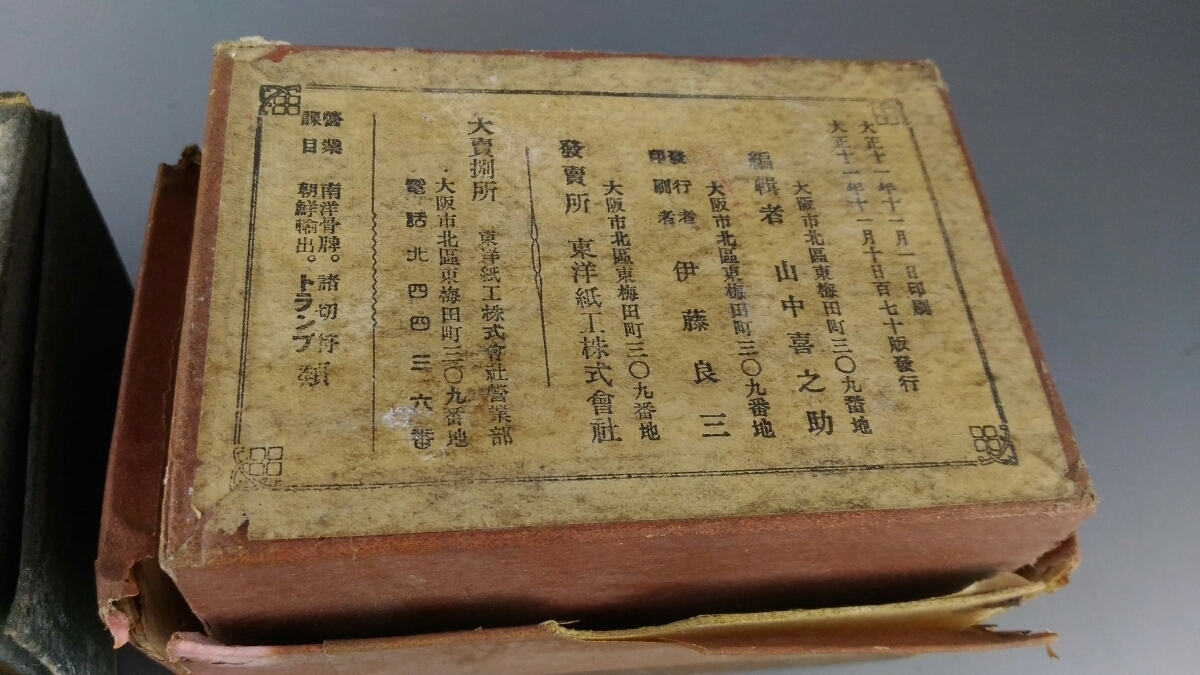 大正十一年十一月一日印刷
大正十一年十一月十日百七十版發行
大阪市北區東梅田町三〇九番地
編輯者 山中喜之助
大阪市北區東梅田町三〇九番地
發行者
印刷者 伊藤良三
大阪市北區東梅田町三〇九番地
發賣所 東洋紙工株式會社
大賣捌所 東洋紙工株式會社營業部
大阪市北區東梅田町三〇九番地
電話北四四三六番
營業
課目
南洋骨牌。諸切符
朝鮮輸出。トランプ類